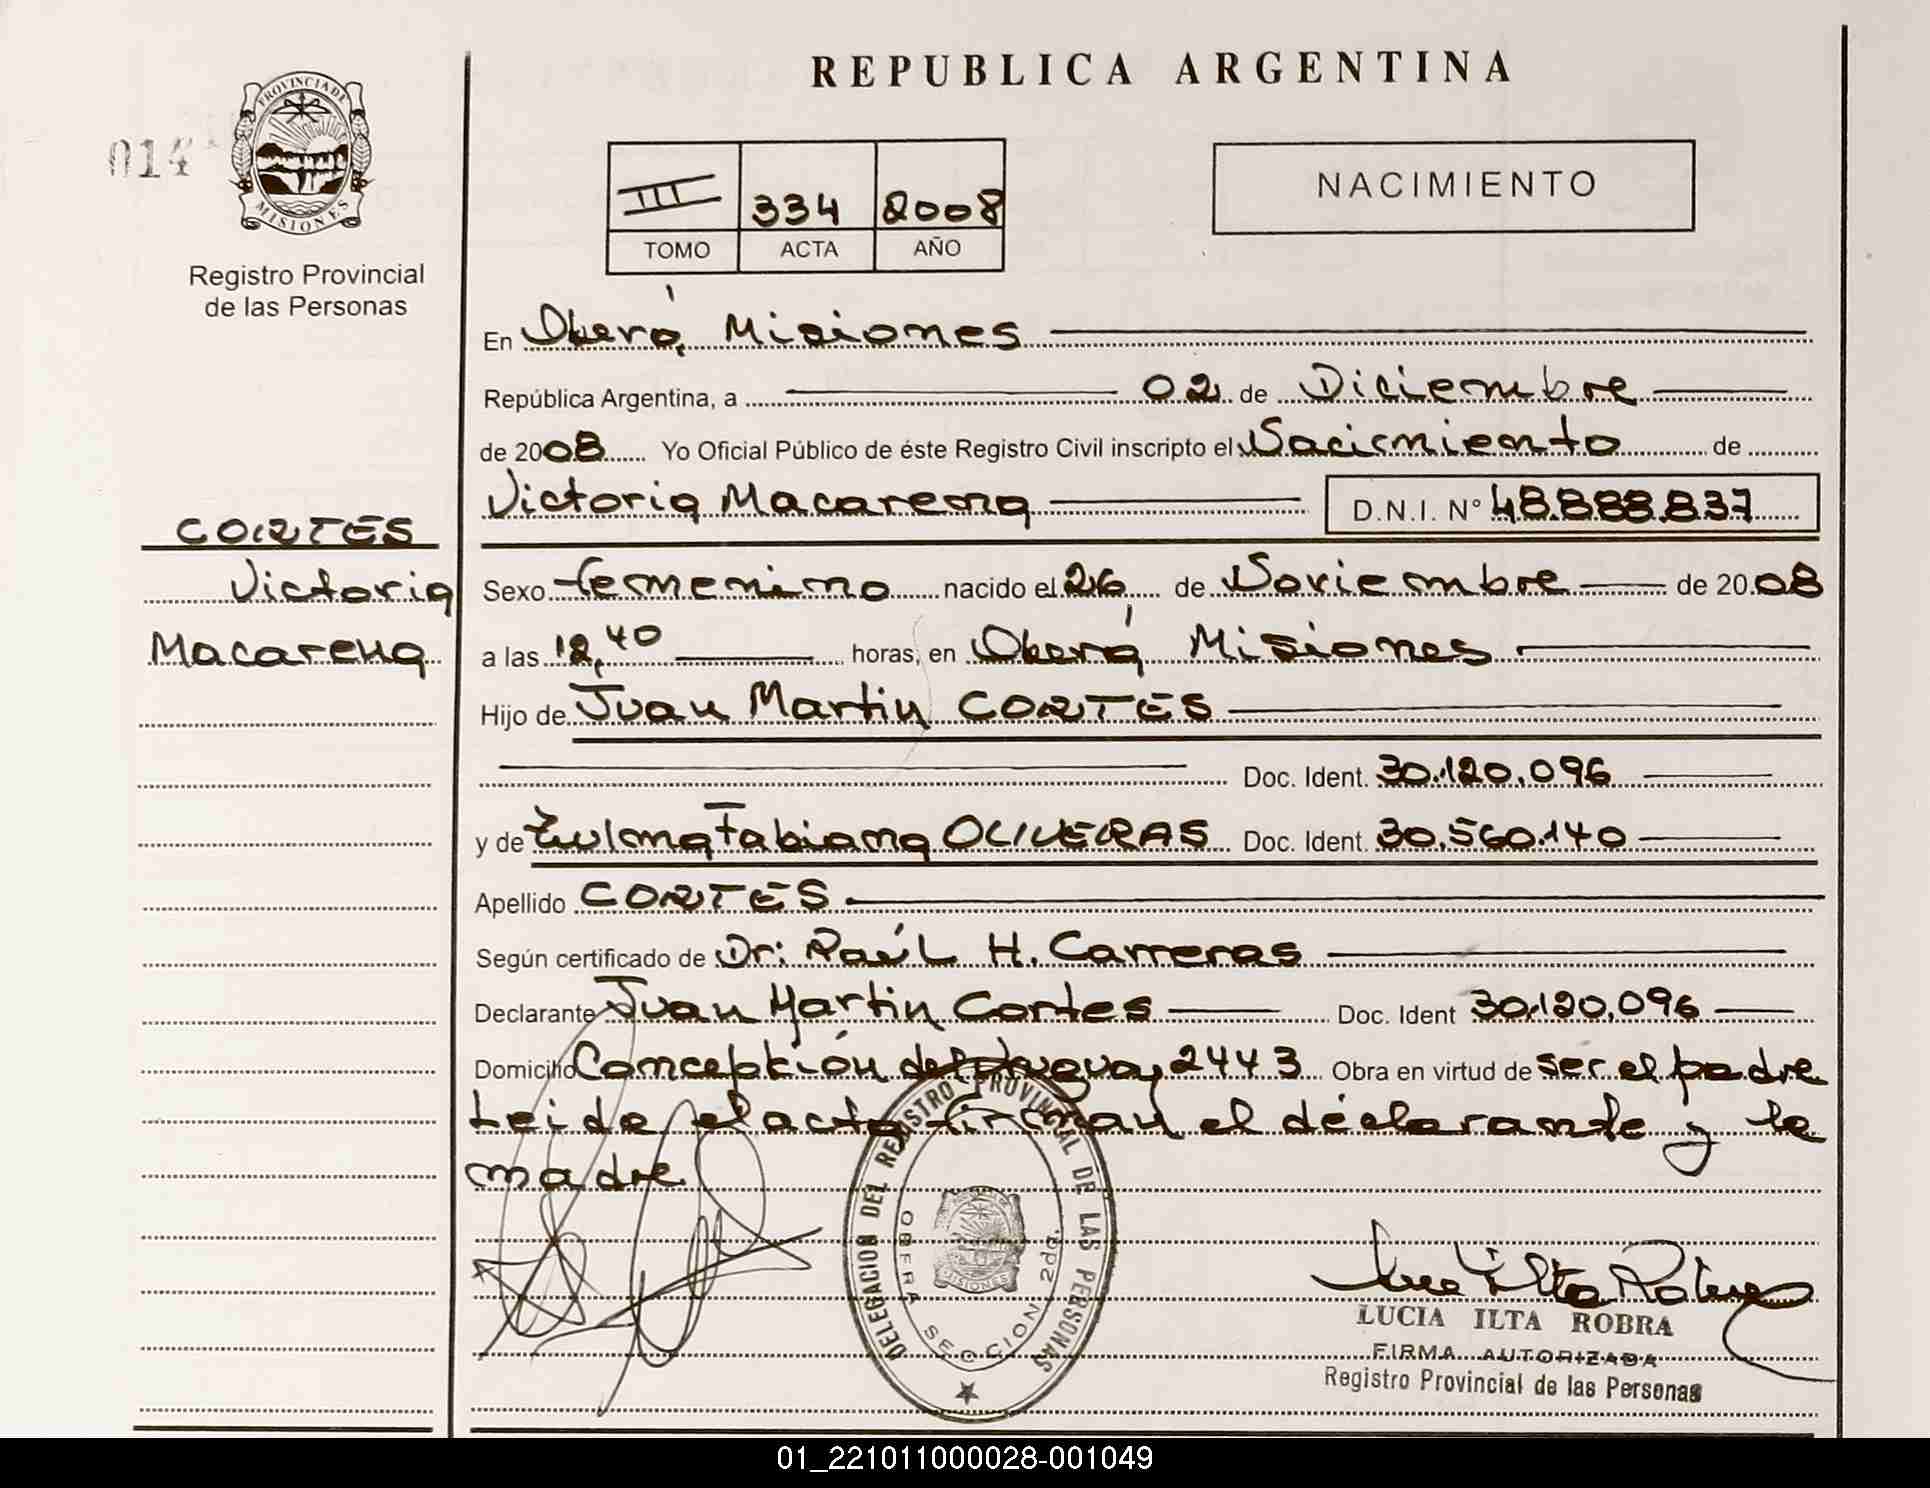 REPUBLICA ARGENTINA
PROVINCIA DE
MISIONES
014
Registro Provincial
de las Personas
III 334 2008
TOMO ACTA AÑO
NACIMIENTO
En Oberá, Misiones
República Argentina, a 02 de Diciembre
de 2008 Yo Oficial Público de éste Registro Civil inscripto el Nacimiento de
Victoria Macarena D.N.I. N° 48.888.837
CORTES
Victoria
Macarena
Sexo femenino nacido el 26 de Noviembre de 2008
a las 12,40 horas, en Oberá Misiones
Hijo de Juan Martin CORTES
Doc. Ident. 30.120.096
y de Zulma Fabiana OLIVEIRAS Doc. Ident. 30.560.140
Apellido CORTES
Según certificado de Dr: Raúl H. Carreras
Declarante Juan Martin Cortes Doc. Ident 30.120.096
Domicilio Concepción del Uruguay 2443 Obra en virtud de ser el padre
Leida el acta firman el declarante y la
madre
DELEGACION DEL REGISTRO PROVINCIAL DE LAS PERSONAS
OBERA SECCION 2da.
MISIONES
LUCIA ILTA ROBRA
FIRMA AUTORIZADA
Registro Provincial de las Personas
01_221011000028-001049